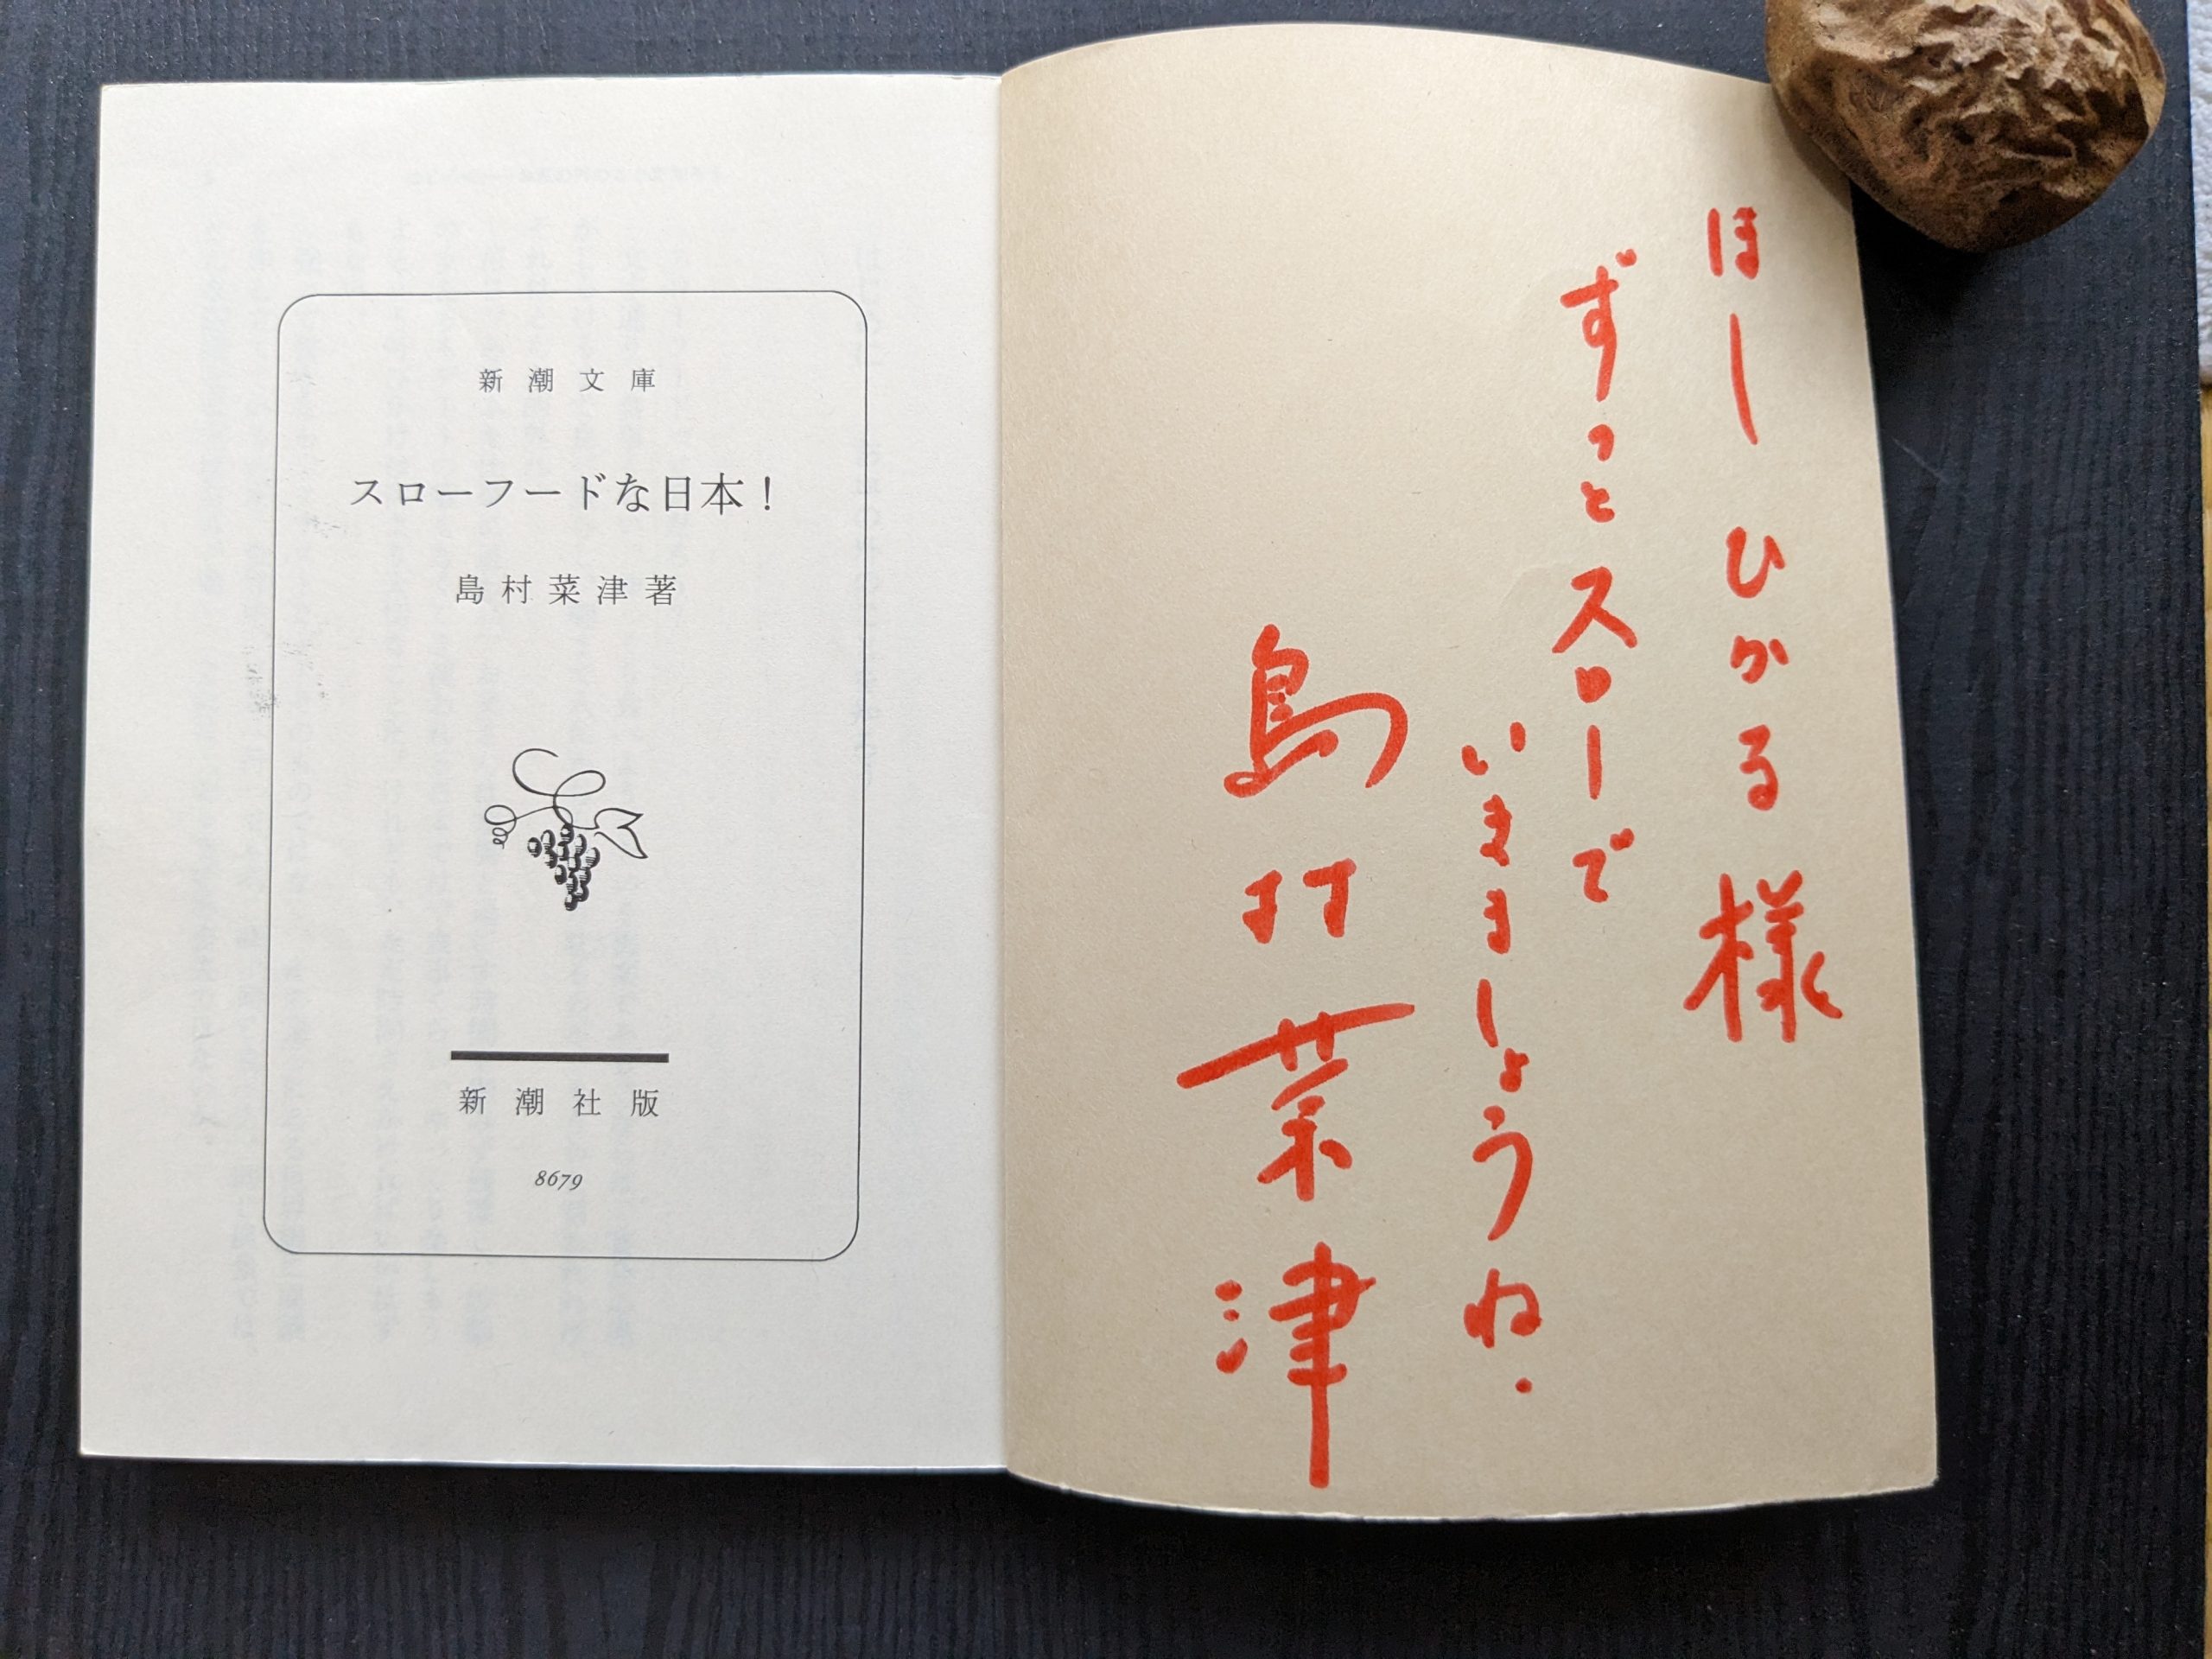 ほし ひかる 様
ずっとスローで
いきましょうね.
島村菜津
新潮文庫
スローフードな日本!
島村菜津著
新潮社版
8679